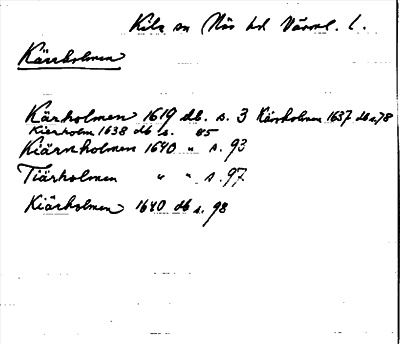 Kila sn Näs hd Värml. l.
Kärrholmen
Kärholmen 1619 db. s. 3 Kärrholmen 1637 db s. 78
Kierholm 1638 db s. 45
Kiärnholmen 1640 " s. 93
Tiärholmen " " s. 97
Kiärholmen 1640 db s. 98